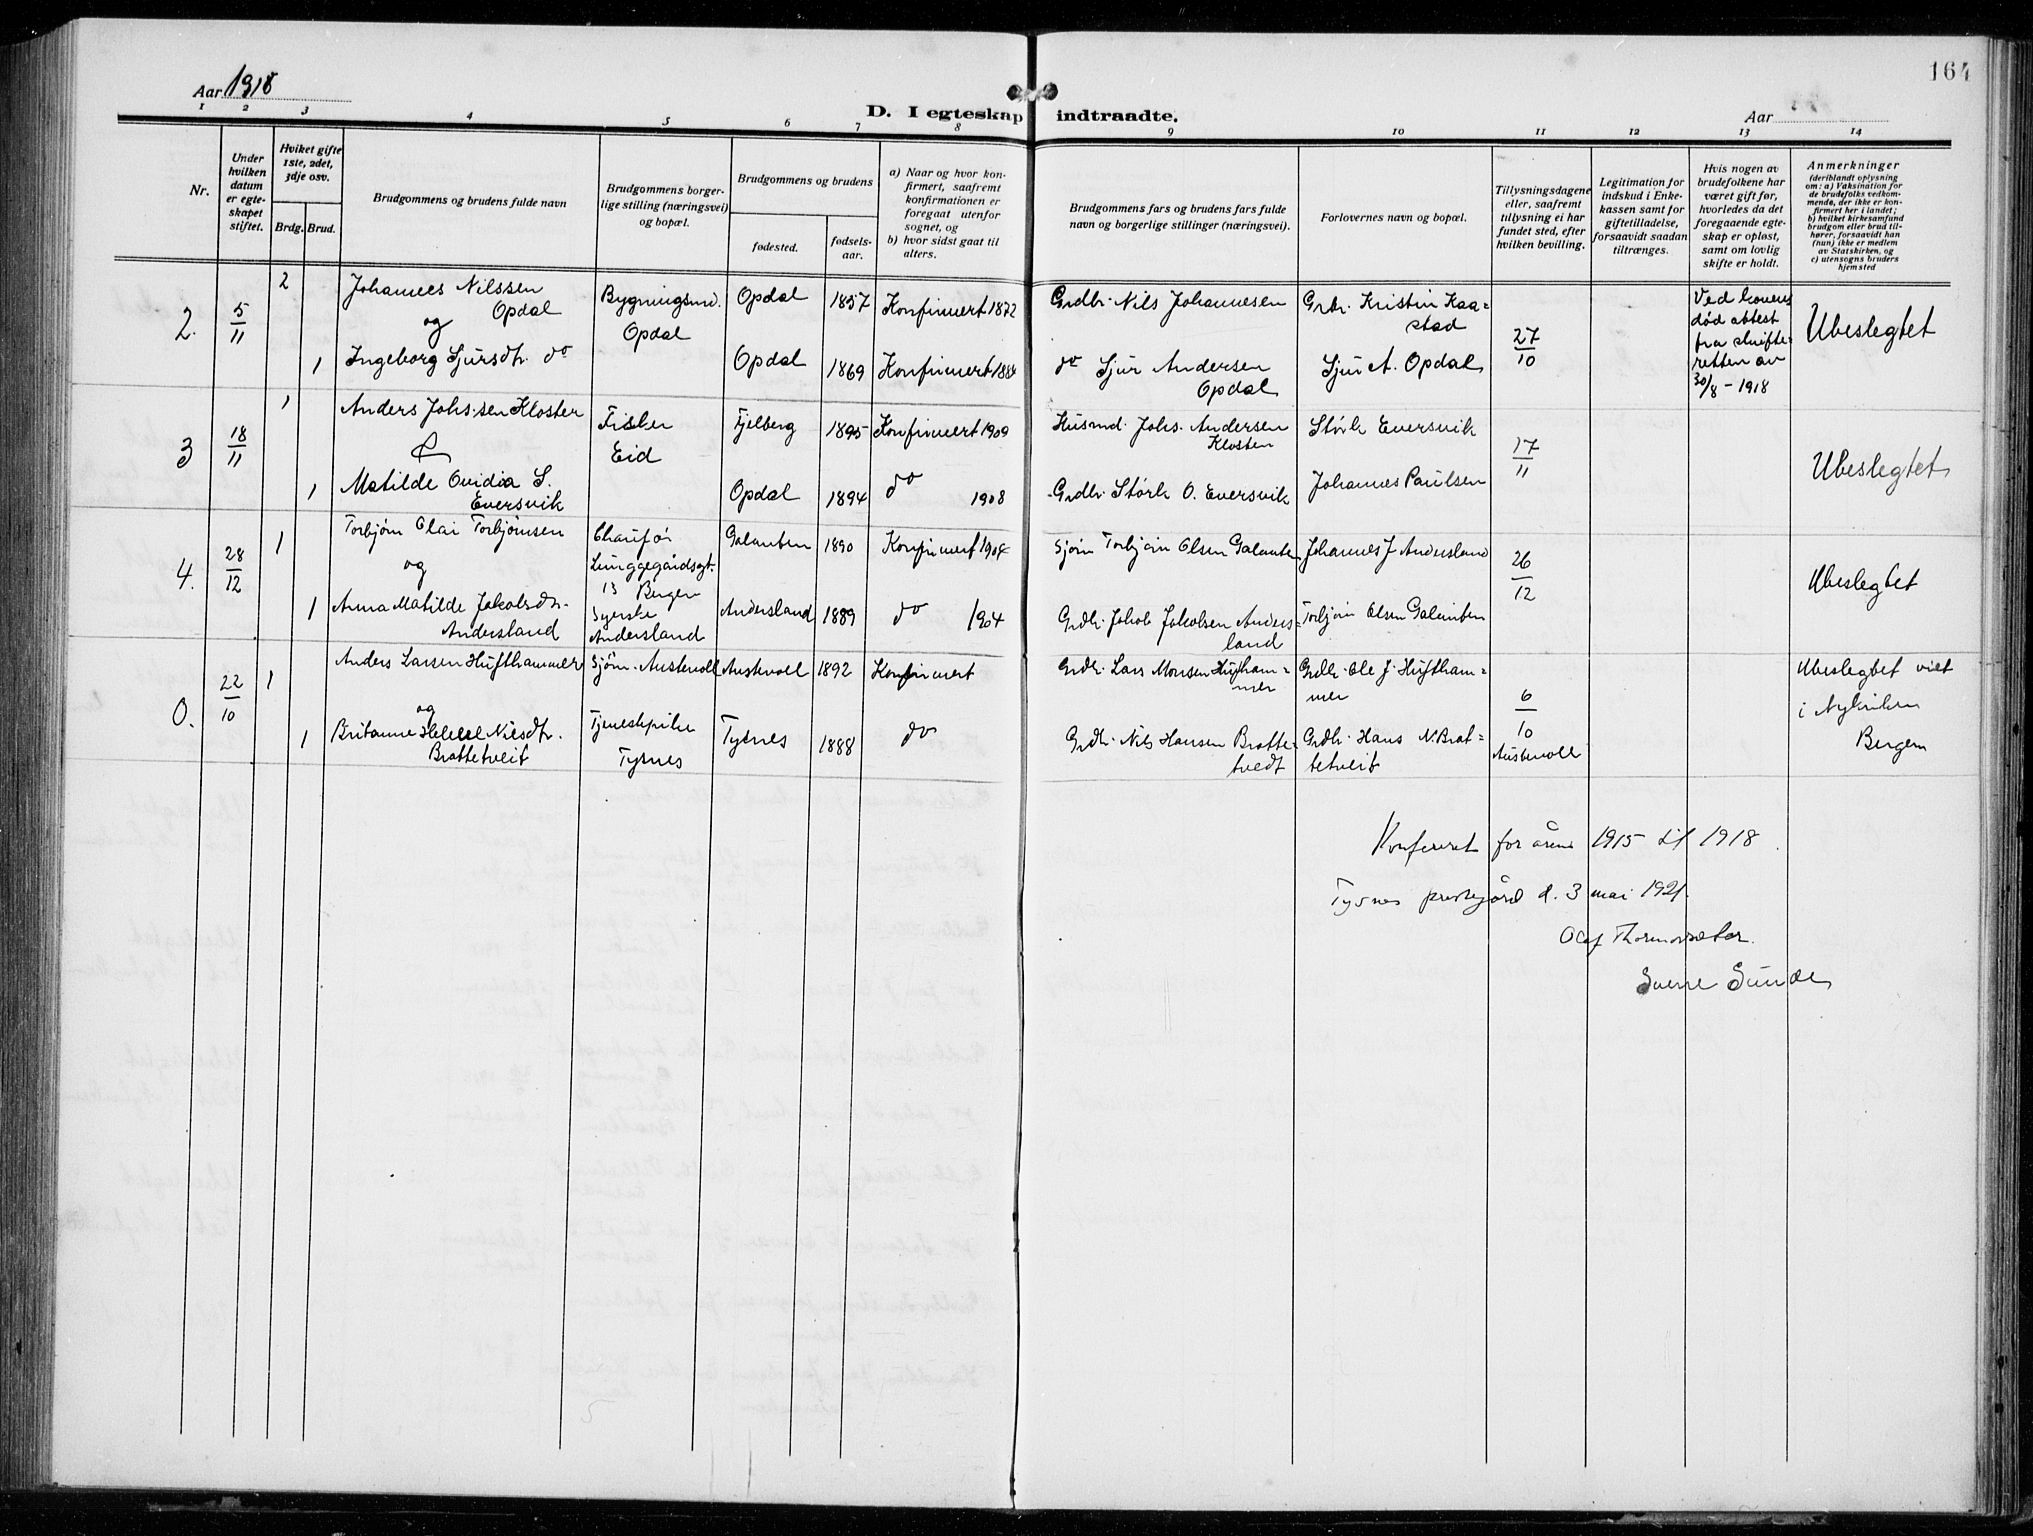 164
Aar 1918
D. I egteskap indtraadte.
Aar
1 2 3 4 5 6 7 8 9 10 11 12 13 14
Nr.
Under hvilken datum er egteskapet stiftet.
Hviket gifte 1ste, 2det, 3dje osv.
Brdg. Brud.
Brudgommens og brudens fulde navn
Brudgommens borgerlige stilling (næringsvei) og bopæl.
Brudgommens og brudens
fødested.
fødselsaar.
a) Naar og hvor konfirmert, saafremt konfirmationen er foregaat utenfor sognet, og
b) hvor sidst gaat til alters.
Brudgommens fars og brudens fars fulde navn og borgerlige stillinger (næringsvei).
Forlovernes navn og bopæl.
Tillysningsdagene eller, saafremt tillysning ei har fundet sted, efter hvilken bevilling.
Legitimation for indskud i Enkekassen samt for giftetilladelse, forsaavidt saadan tiltrænges.
Hvis nogen av brudefolkene har været gift før, hvorledes da det foregaaende egteskap er opløst, samt om lovlig skifte er holdt.
Anmerkninger (deriblandt oplysning om: a) Vaksination for de brudefolks vedkommendø, der ikke er konfirmert her i landet; b) hvilket kirkesamfund brudgom eller brud tilhører, forsaavidt han (hun) ikke er medlem av Statskirken, og c) utensogns bruders hjemsted
2. 5/11 2 Johannes Nilssen Opdal Bygningsmd. Opdal Opdal 1857 Konfirmert 1872 Grdbr. Nils Johannesen Grbr. Kristin Kaastad 27/10 Ved konens død attest fra skifteretten av 30/8 - 1918 Ubeslegtet
og
1 Ingeborg Sjursdtr. do Opdal 1869 Konfirmert 1884 do Sjur Andersen Opdal Sjur A. Opdal
3 18/11 1 Anders Johs.sen Kloster Fisker Eid Fjelberg 1895 Konfirmert 1909 Husmd. Johs. Andersen Kloster Størk Eversvik 17/11 Ubeslegtet
&
1 Matilde Ovidia S. Eversvik Opdal 1894 do 1908 Grdbr. Størk O. Eversvik Johannes Paulsen
4. 28/12 1 Torbjørn Olai Torbjørnsen Chaufør Lunggegårdsgt. 13 Bergen Galanten 1890 Konfirmert 1904 Sjøm Torbjørn Olsen Galanten Johannes J Andersland 26/12 Ubeslegtet
og
1 Anna Matilde Jakobsdtr. Andersland Syerske Andersland Andersland 1889 do 1904 Grdbr. Jakob Jakobsen Andersland Torbjørn Olsen Galanten
0. 22/10 1 Anders Larsen Hufthammer Sjøm. Austevoll Austevoll 1892 Konfirmert Grdbr. Lars Monsen Hufthammer Grdbr. Ole J. Hufthammer 6/10 Austevoll Ubeslegtet viet i Nykirken Bergen
og
1 Britanne Helene Nilsdtr. Brattetveit Tjenestepike Tysnes Tysnes 1888 do Grdbr. Nils Hansen Brattetvedt Grdbr. Hans N. Brattetveit
Konfereret for årene 1915 til 1918.
Tysnes prestegård d. 3 mai 1921.
Olaf Thormodsæter.
Sverre Sunde